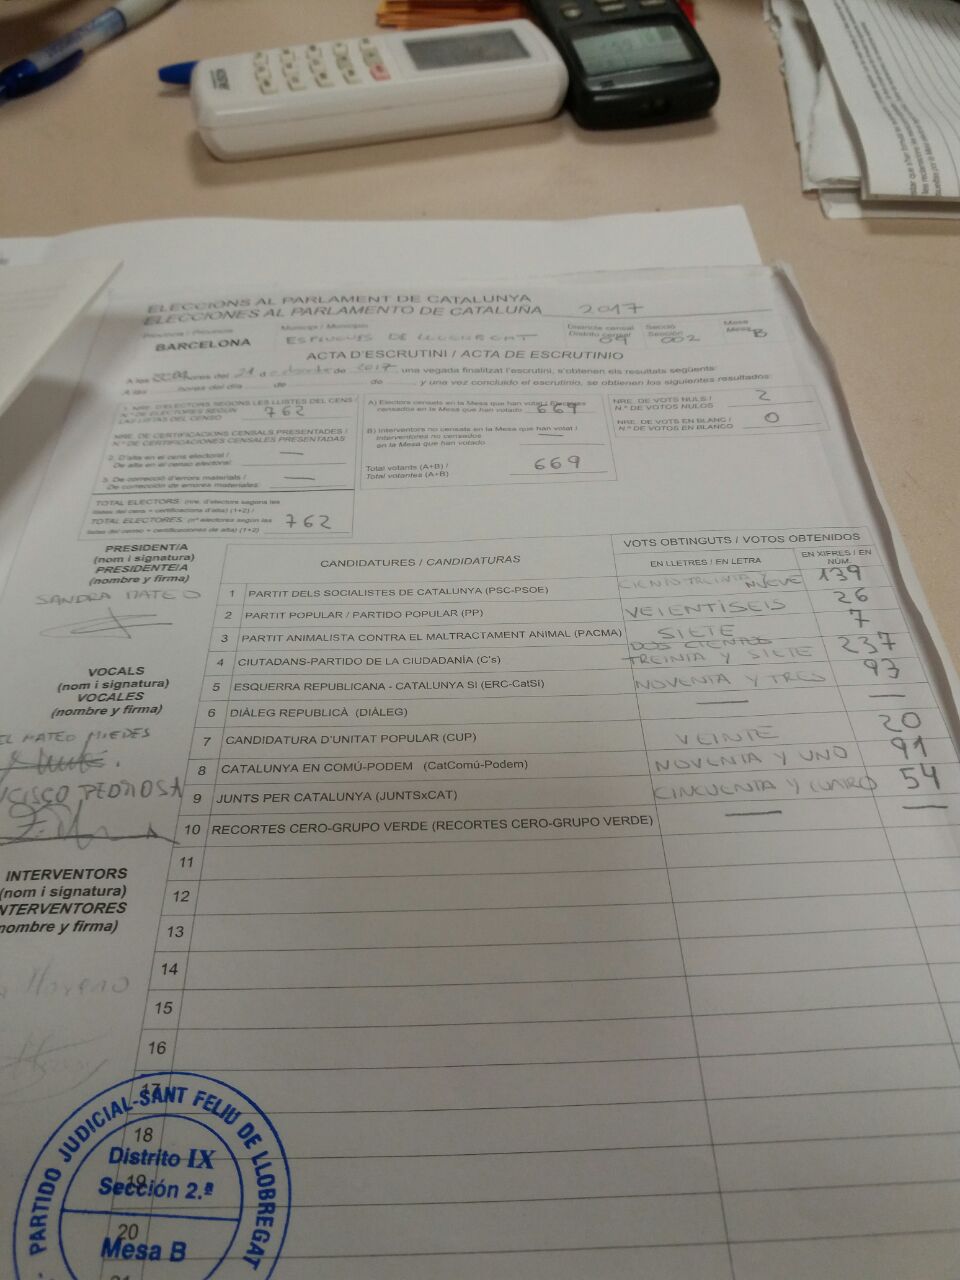 ELECCIONS AL PARLAMENT DE CATALUNYA
ELECCIONES AL PARLAMENTO DE CATALUÑA 2017
Província / Provincia
BARCELONA
Municipi / Municipio
ESPLUGUES DE LLOBREGAT
Districte censal
Distrito censal
09
Secció
Sección
002
Mesa
Mesa
B
ACTA D'ESCRUTINI / ACTA DE ESCRUTINIO
A les hores del 21 d de 2017, una vegada finalitzat l'escrutini, s'obtenen els resultats següents:
A las horas del día de de , y una vez concluido el escrutinio, se obtienen los siguientes resultados:
1. NRE. D'ELECTORS SEGONS LES LLISTES DEL CENS /
N.º DE ELECTORES SEGÚN
LAS LISTAS DEL CENSO
762
NRE. DE CERTIFICACIONS CENSALS PRESENTADES /
N.º DE CERTIFICACIONES CENSALES PRESENTADAS
2. D'alta en el cens electoral /
De alta en el censo electoral: —
3. De correcció d'errors materials /
De corrección de errores materiales: —
TOTAL ELECTORS: (nre. d'electors segons les
llistes del cens + certificacions d'alta) (1+2) /
TOTAL ELECTORES: (nº electores según las
listas del censo + certificaciones de alta) (1+2)
762
A) Electors censats en la Mesa que han votat / Electores
censados en la Mesa que han votado 669
B) Interventors no censats en la Mesa que han votat /
Interventores no censados
en la Mesa que han votado —
Total votants (A+B) /
Total votantes (A+B) 669
NRE. DE VOTS NULS /
N.º DE VOTOS NULOS 2
NRE. DE VOTS EN BLANC /
N.º DE VOTOS EN BLANCO 0
PRESIDENT/A
(nom i signatura)
PRESIDENTE/A
(nombre y firma)
SANDRA MATEO
VOCALS
(nom i signatura)
VOCALES
(nombre y firma)
EL MATEO MIEDES
CISCO PEDROSA
INTERVENTORS
(nom i signatura)
INTERVENTORES
(nombre y firma)
Moreno
CANDIDATURES / CANDIDATURAS
VOTS OBTINGUTS / VOTOS OBTENIDOS
EN LLETRES / EN LETRA
EN XIFRES / EN NÚM.
1 PARTIT DELS SOCIALISTES DE CATALUNYA (PSC-PSOE) CIENTO TREINTA Y NUEVE 139
2 PARTIT POPULAR / PARTIDO POPULAR (PP) VEIENTISEIS 26
3 PARTIT ANIMALISTA CONTRA EL MALTRACTAMENT ANIMAL (PACMA) SIETE 7
4 CIUTADANS-PARTIDO DE LA CIUDADANÍA (C's) DOS CIENTOS TREINTA Y SIETE 237
5 ESQUERRA REPUBLICANA - CATALUNYA SÍ (ERC-CatSí) NOVENTA Y TRES 93
6 DIÀLEG REPUBLICÀ (DIÀLEG) — —
7 CANDIDATURA D'UNITAT POPULAR (CUP) VEINTE 20
8 CATALUNYA EN COMÚ-PODEM (CatComú-Podem) NOVENTA Y UNO 91
9 JUNTS PER CATALUNYA (JUNTSxCAT) CINCUENTA Y CUATRO 54
10 RECORTES CERO-GRUPO VERDE (RECORTES CERO-GRUPO VERDE) — —
11
12
13
14
15
16
17
18
19
20
21
PARTIDO JUDICIAL-SANT FELIU DE LLOBREGAT
Distrito IX
Sección 2.ª
Mesa B